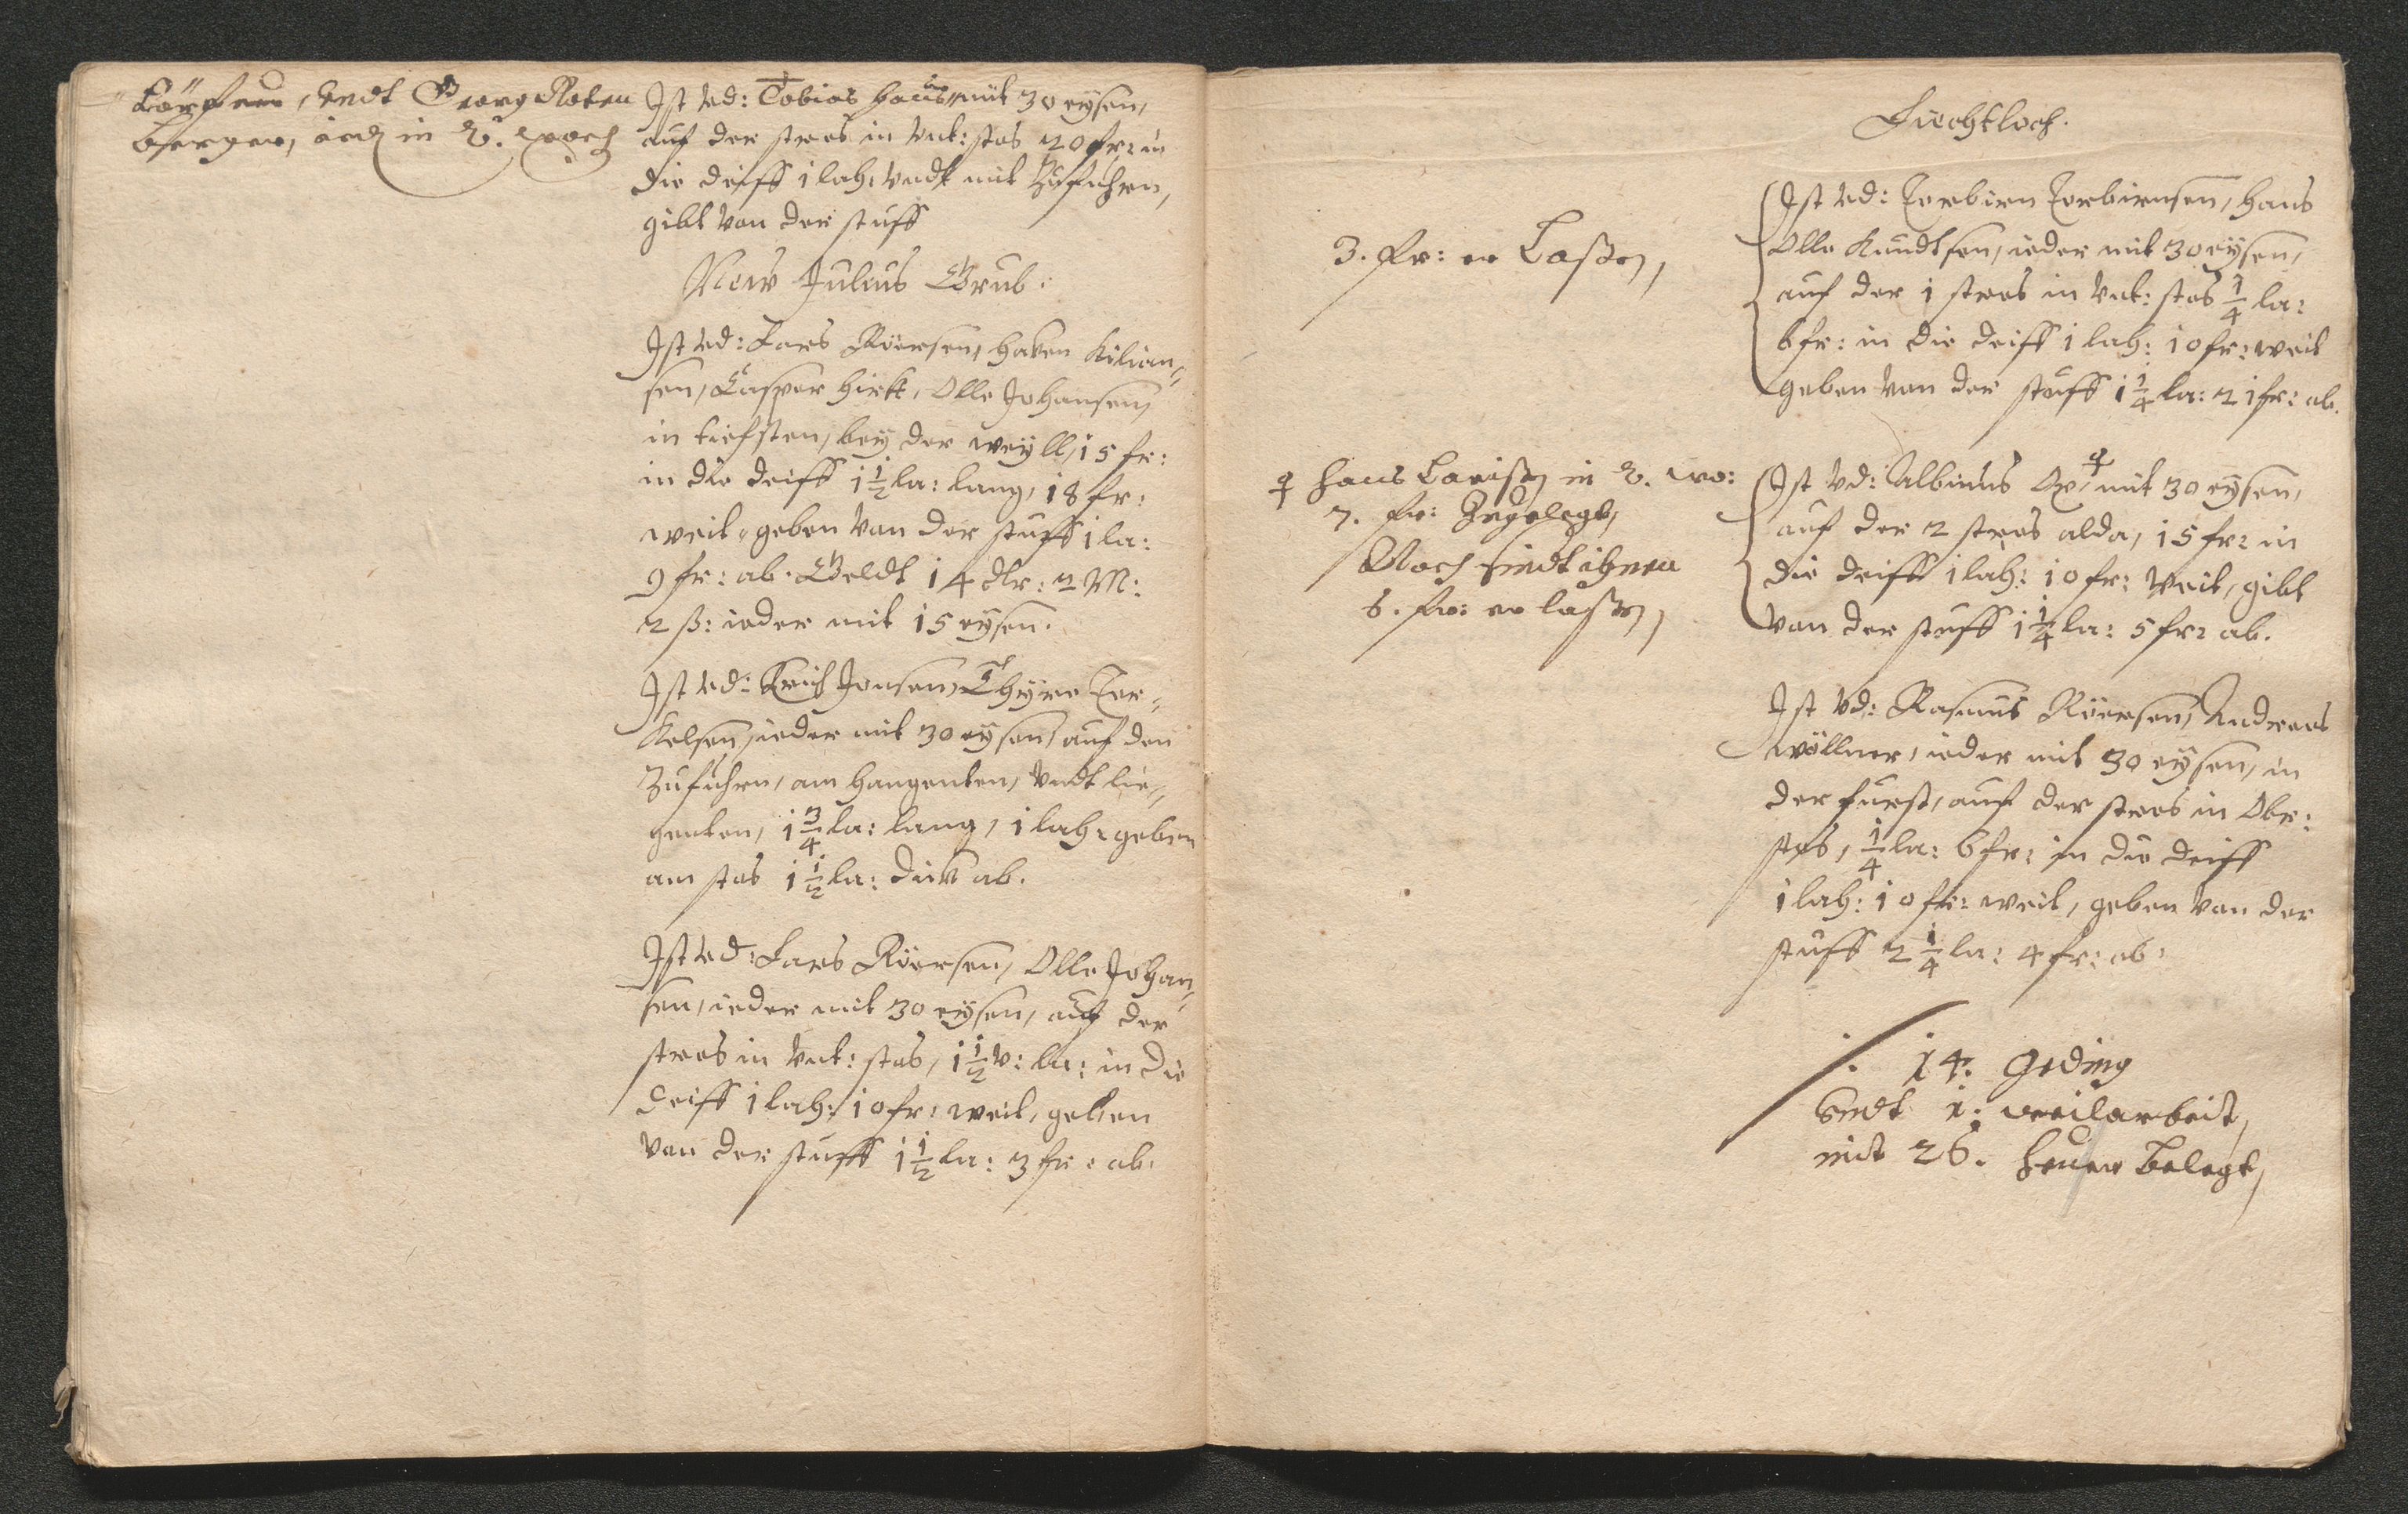 vndt Georg Roten
berger, in 2. woch
Ist vd: Tobias Haus mit 30 eysen,
auf der stros in vnt: stos 20 fr: in
die deiff 1 lah: vndt mit zufuhren,
gibt von der stuff
New Julius Grub:
Ist vd: Lars Röersen, Haken Kilian„
sen, Casper Hirtt, Olle Johansen,
in tiefsten, bey der weyll, 15 fr:
in die deiff 1 1/2 la: lang, 18 fr:
weit, geben von der stuff 1 la:
9 fr: ab. Geldt 14 dlr: 2 M:
2 ß: ieder mit 15 eysen.
Ist vd: Erich Jonsen, Thyre Ter„
Kelsen, ieder mit 30 eysen, auf den
zufuhren, am hangenten, vndt lie„
genten, 1 3/4 la: lang, 1 lah: geben
am stos 1 1/2 la: ab.
Ist vd: Lars Röersen, Olle Johan„
sen, ieder mit 30 eysen, auf der
stros in vnt: stos, 1 1/2 v: la: in die
deiff 1 lah: 10 fr: weit, geben
von der stuff 1 1/2 la: 3 fr: ab.
Fuechtloch.
3. fr: er Laßen,
Ist vd: Torbiern Torbiernsen, Hans
Olle Knudtsen, ieder mit 30 eysen,
auf der 1 stros in vnt: stos 1/4 la:
6 fr: in die deiff 1 lah: 10 fr: weit
geben von der stuff 1 1/4 la: 21 fr: ab.
Hans Larißen in 2. wo:
7. fr: Zugelegt,
Noch sindt ihnen
6. fr: er laßen,
Ist vd: Albinus Ox, mit 30 eysen,
auf der 2 stros alda, 15 fr: in
die deiff 1 lah: 10 fr: weit, gibt
von der stuff 1 1/4 la: 5 fr: ab.
Ist vd: Rasmus Röersen, Andreas
Wöllner, ieder mit 30 eysen, in
der furst, auf der stros in Obr:
stos, 1/4 la: 6 fr: in die deiff
1 lah: 10 fr: weit, geben von der
stuff 2 1/4 la: 4 fr: ab:
14. Geding
Vndt 1. weilarbeit,
mit 26. heuer Belegt,